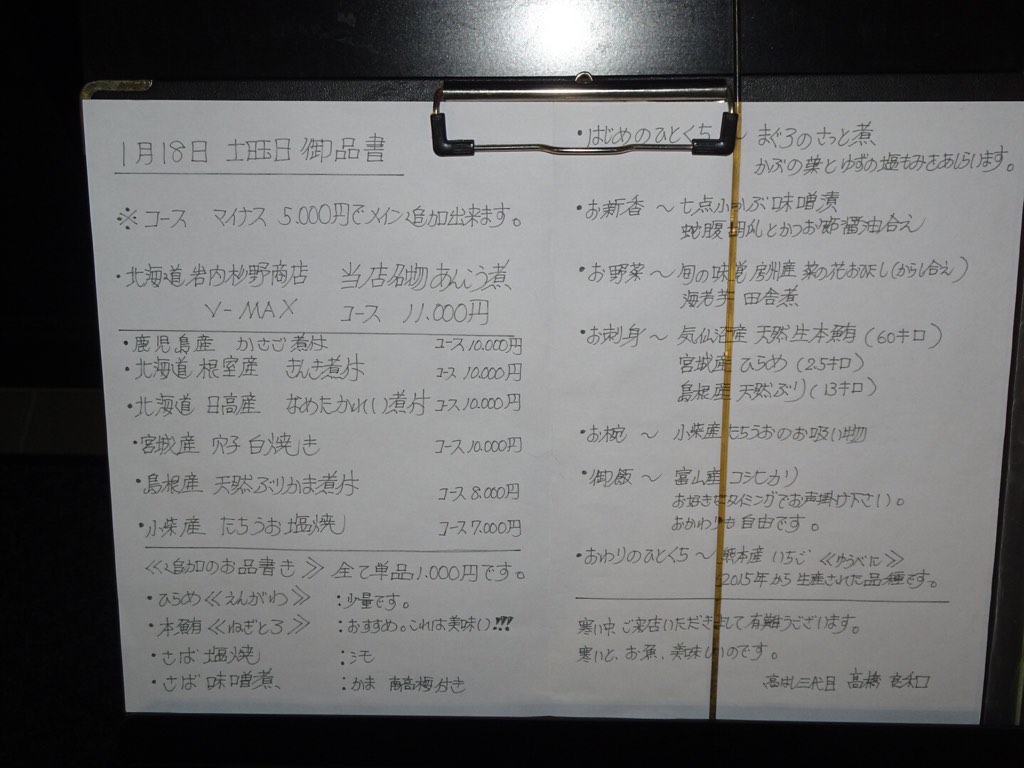 1月18日 土曜日 御品書
※ コース マイナス 5.000円でメイン追加出来ます。
・北海道 岩内杉野商店 当店名物 あんこう煮
V-MAX コース 11.000円
・鹿児島産 かさご煮付 コース10.000円
・北海道 根室産 きんき煮付 コース10.000円
・北海道 日高産 なめたかれい煮付 コース10.000円
・宮城産 穴子 白焼き コース10.000円
・島根産 天然ぶりかま煮付 コース8.000円
・小柴産 たちうお塩焼 コース7.000円
≪追加のお品書き≫ 全て単品1.000円です。
・ひらめ≪えんがわ≫ :少量です。
・本鮪≪ねぎとろ≫ :おすすめ。これは美味い!!!
・さば 塩焼 :シモ
・さば 味噌煮、 :かま 南高梅付き
・はじめのひとくち ~ まぐろのさっと煮
かぶの葉とゆずの塩もみをあしらいます。
・お新香 ~ 七点小かぶ味噌漬
蛇腹胡瓜とかつお節醤油合え
・お野菜 ~ 旬の味覚 房州産 菜の花おひたし(からし合え)
海老芋 田舎煮
・お刺身 ~ 気仙沼産 天然 生本鮪(60キロ)
宮城産 ひらめ(2.5キロ)
島根産 天然ぶり(13キロ)
・お椀 ~ 小柴産 たちうおのお吸い物
・御飯 ~ 富山産 コシヒカリ
お好きなタイミングでお声掛け下さい。
おかわりも自由です。
・おわりのひとくち ~ 熊本産 いちご ≪ゆうべに≫
2015年から生産された品種です。
寒い中、ご来店いただきまして有難うございます。
寒いと、お魚、美味しいのです。
高はし三代目 高橋